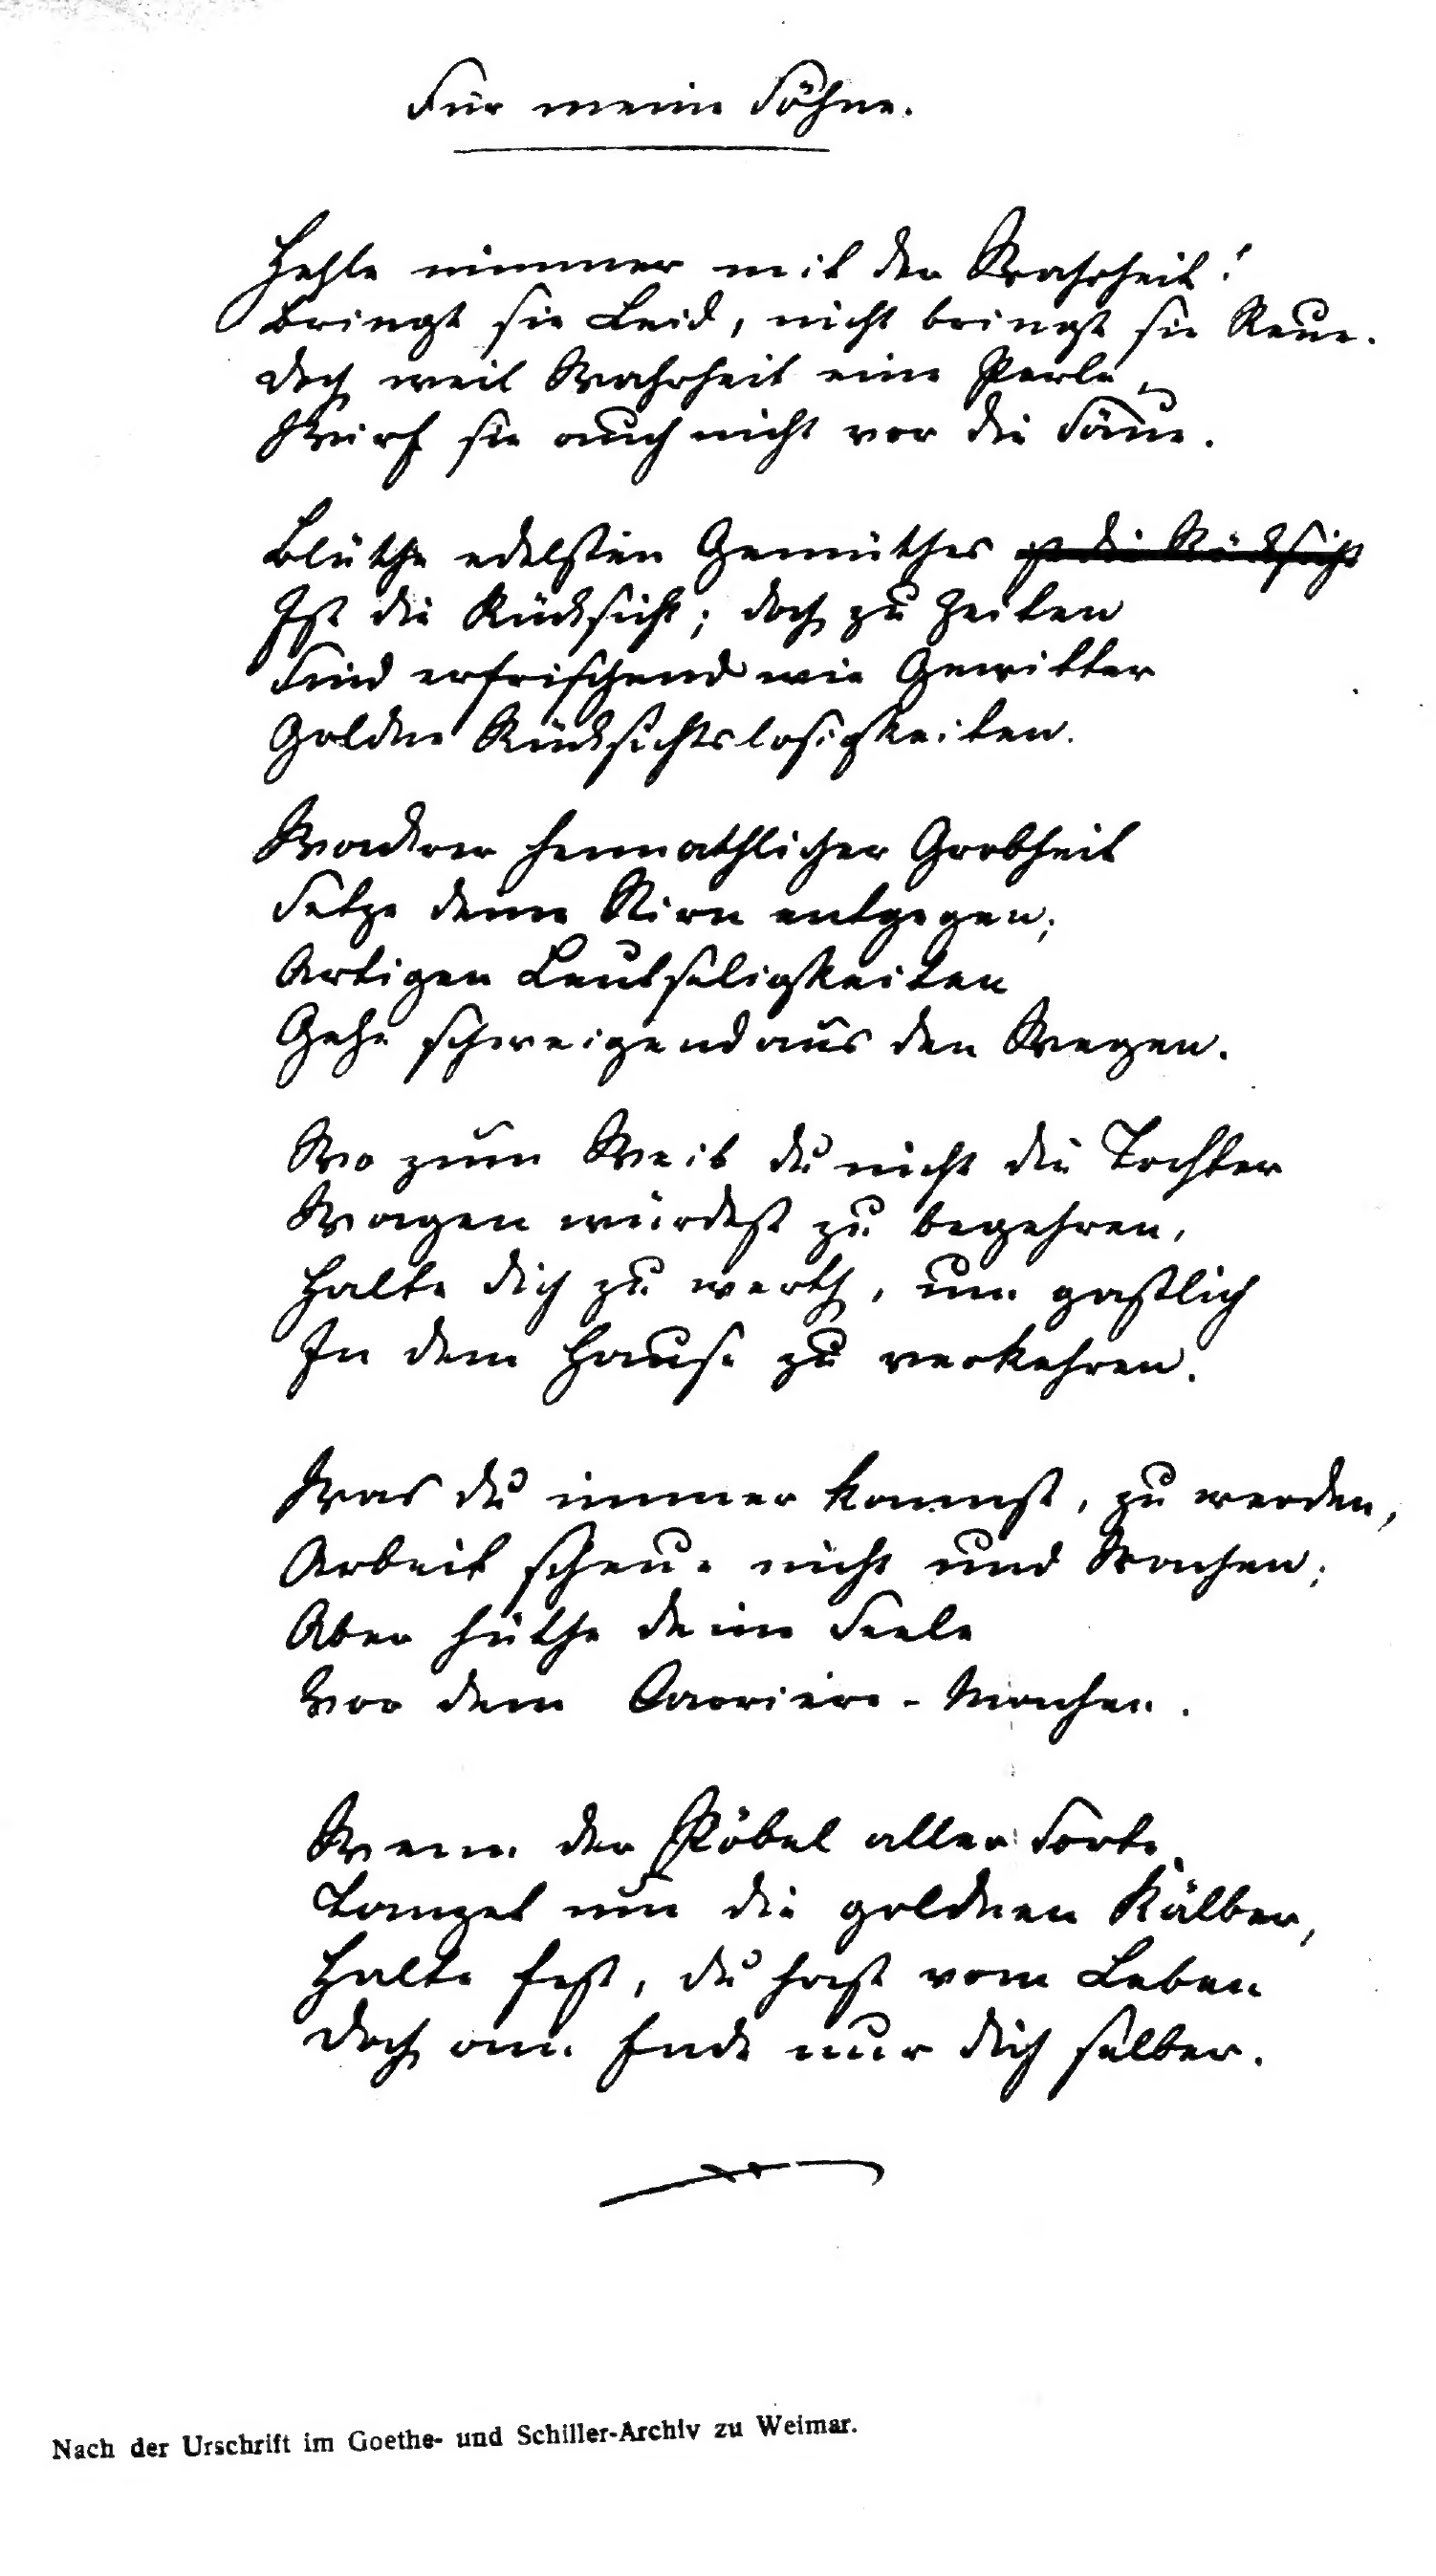 Für meine Söhne.
Hehle nimmer mit der Wahrheit!
Bringt sie Leid, nicht bringt sie Reue.
Doch, weil Wahrheit eine Perle,
Wirf sie auch nicht vor die Säue.
Blüthe edelsten Gemüthes ist die Rücksicht
Ist die Rücksicht; doch zu Zeiten
Sind erfrischend wie Gewitter
Goldne Rücksichtslosigkeiten.
Wackrer heimathlicher Grobheit
Setze deine Stirn entgegen;
Artigen Leutseligkeiten
Gehe schweigend aus den Wegen.
Wo zum Weib du nicht die Tochter
Wagen würdest zu begehren,
Halte dich zu werth, um gastlich
In dem Hause zu verkehren.
Was du immer kannst, zu werden,
Arbeit scheue nicht und Wachen;
Aber hüthe deine Seele
Vor dem Carriere-Machen.
Wenn der Pöbel aller Sorte
Tanzet um die goldnen Kälber,
Halte fest, du hast vom Leben
Doch am Ende nur dich selber.
Nach der Urschrift im Goethe- und Schiller-Archiv zu Weimar.